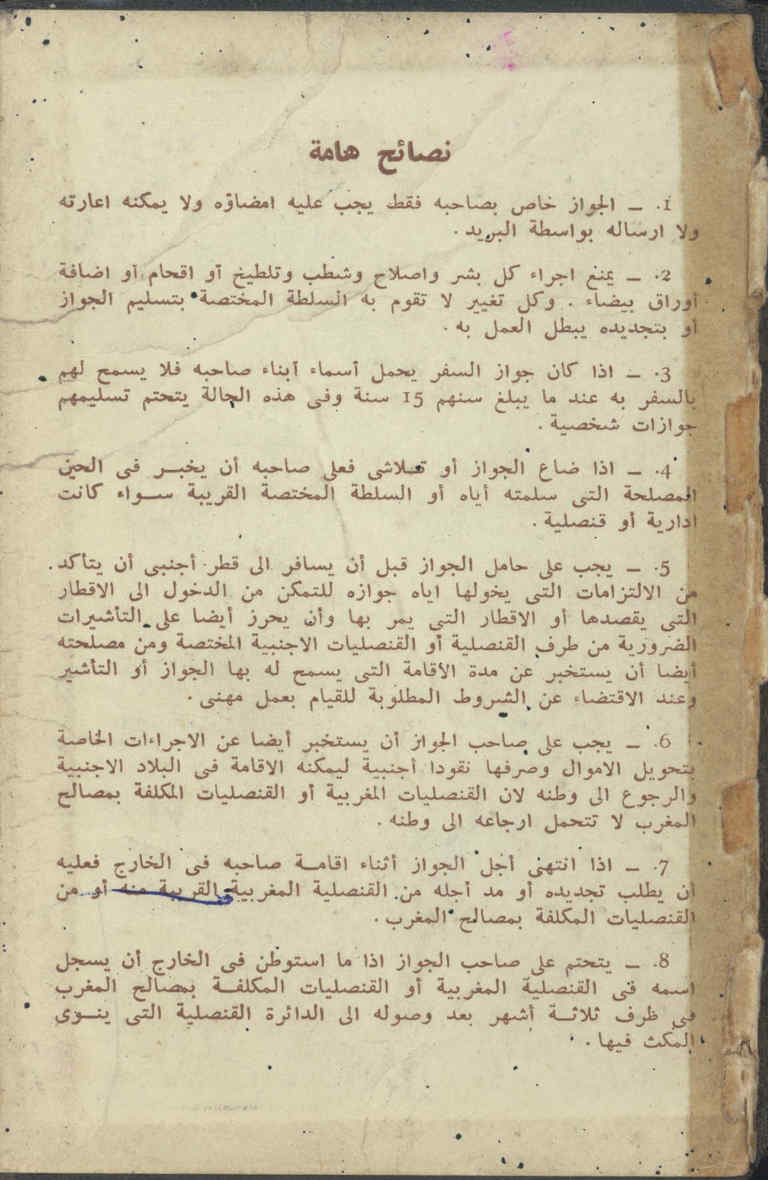 نصائح هامة
1. ـ الجواز خاص بصاحبه فقط يجب عليه امضاؤه ولا يمكنه اعارته
ولا ارساله بواسطة البريد.
2. ـ يمنع اجراء كل بشر واصلاح وشطب وتلطيخ أو اقحام أو اضافة
أوراق بيضاء . وكل تغيير لا تقوم به السلطة المختصة بتسليم الجواز
أو بتجديده يبطل العمل به.
3. ـ اذا كان جواز السفر يحمل أسماء أبناء صاحبه فلا يسمح لهم
بالسفر به عند ما يبلغ سنهم 15 سنة وفى هذه الحالة يتحتم تسليمهم
جوازات شخصية.
4. ـ اذا ضاع الجواز أو تلاشى فعلى صاحبه أن يخبر فى الحين
المصلحة التى سلمته أياه أو السلطة المختصة القريبة سواء كانت
ادارية أو قنصلية.
5. ـ يجب على حامل الجواز قبل أن يسافر الى قطر أجنبى أن يتأكد
من الالتزامات التى يخولها اياه جوازه للتمكن من الدخول الى الاقطار
التى يقصدها أو الاقطار التى يمر بها وأن يحرز أيضا على التأشيرات
الضرورية من طرف القنصلية أو القنصليات الاجنبية المختصة ومن مصلحته
أيضا أن يستخبر عن مدة الأقامة التى يسمح له بها الجواز أو التأشير
وعند الاقتضاء عن الشروط المطلوبة للقيام بعمل مهنى.
6. ـ يجب على صاحب الجواز أن يستخبر أيضا عن الاجراءات الخاصة
بتحويل الاموال وصرفها نقودا أجنبية ليمكنه الاقامة فى البلاد الاجنبية
والرجوع الى وطنه لان القنصليات المغربية أو القنصليات المكلفة بمصالح
المغرب لا تتحمل ارجاعه الى وطنه.
7. ـ اذا انتهى أجل الجواز أثناء اقامة صاحبه فى الخارج فعليه
أن يطلب تجديده أو مد أجله من القنصلية المغربية القريبة منه أو من
القنصليات المكلفة بمصالح المغرب.
8. ـ يتحتم على صاحب الجواز اذا ما استوطن فى الخارج أن يسجل
اسمه فى القنصلية المغربية أو القنصليات المكلفة بمصالح المغرب
فى ظرف ثلاثة أشهر بعد وصوله الى الدائرة القنصلية التى ينوى
المكث فيها.